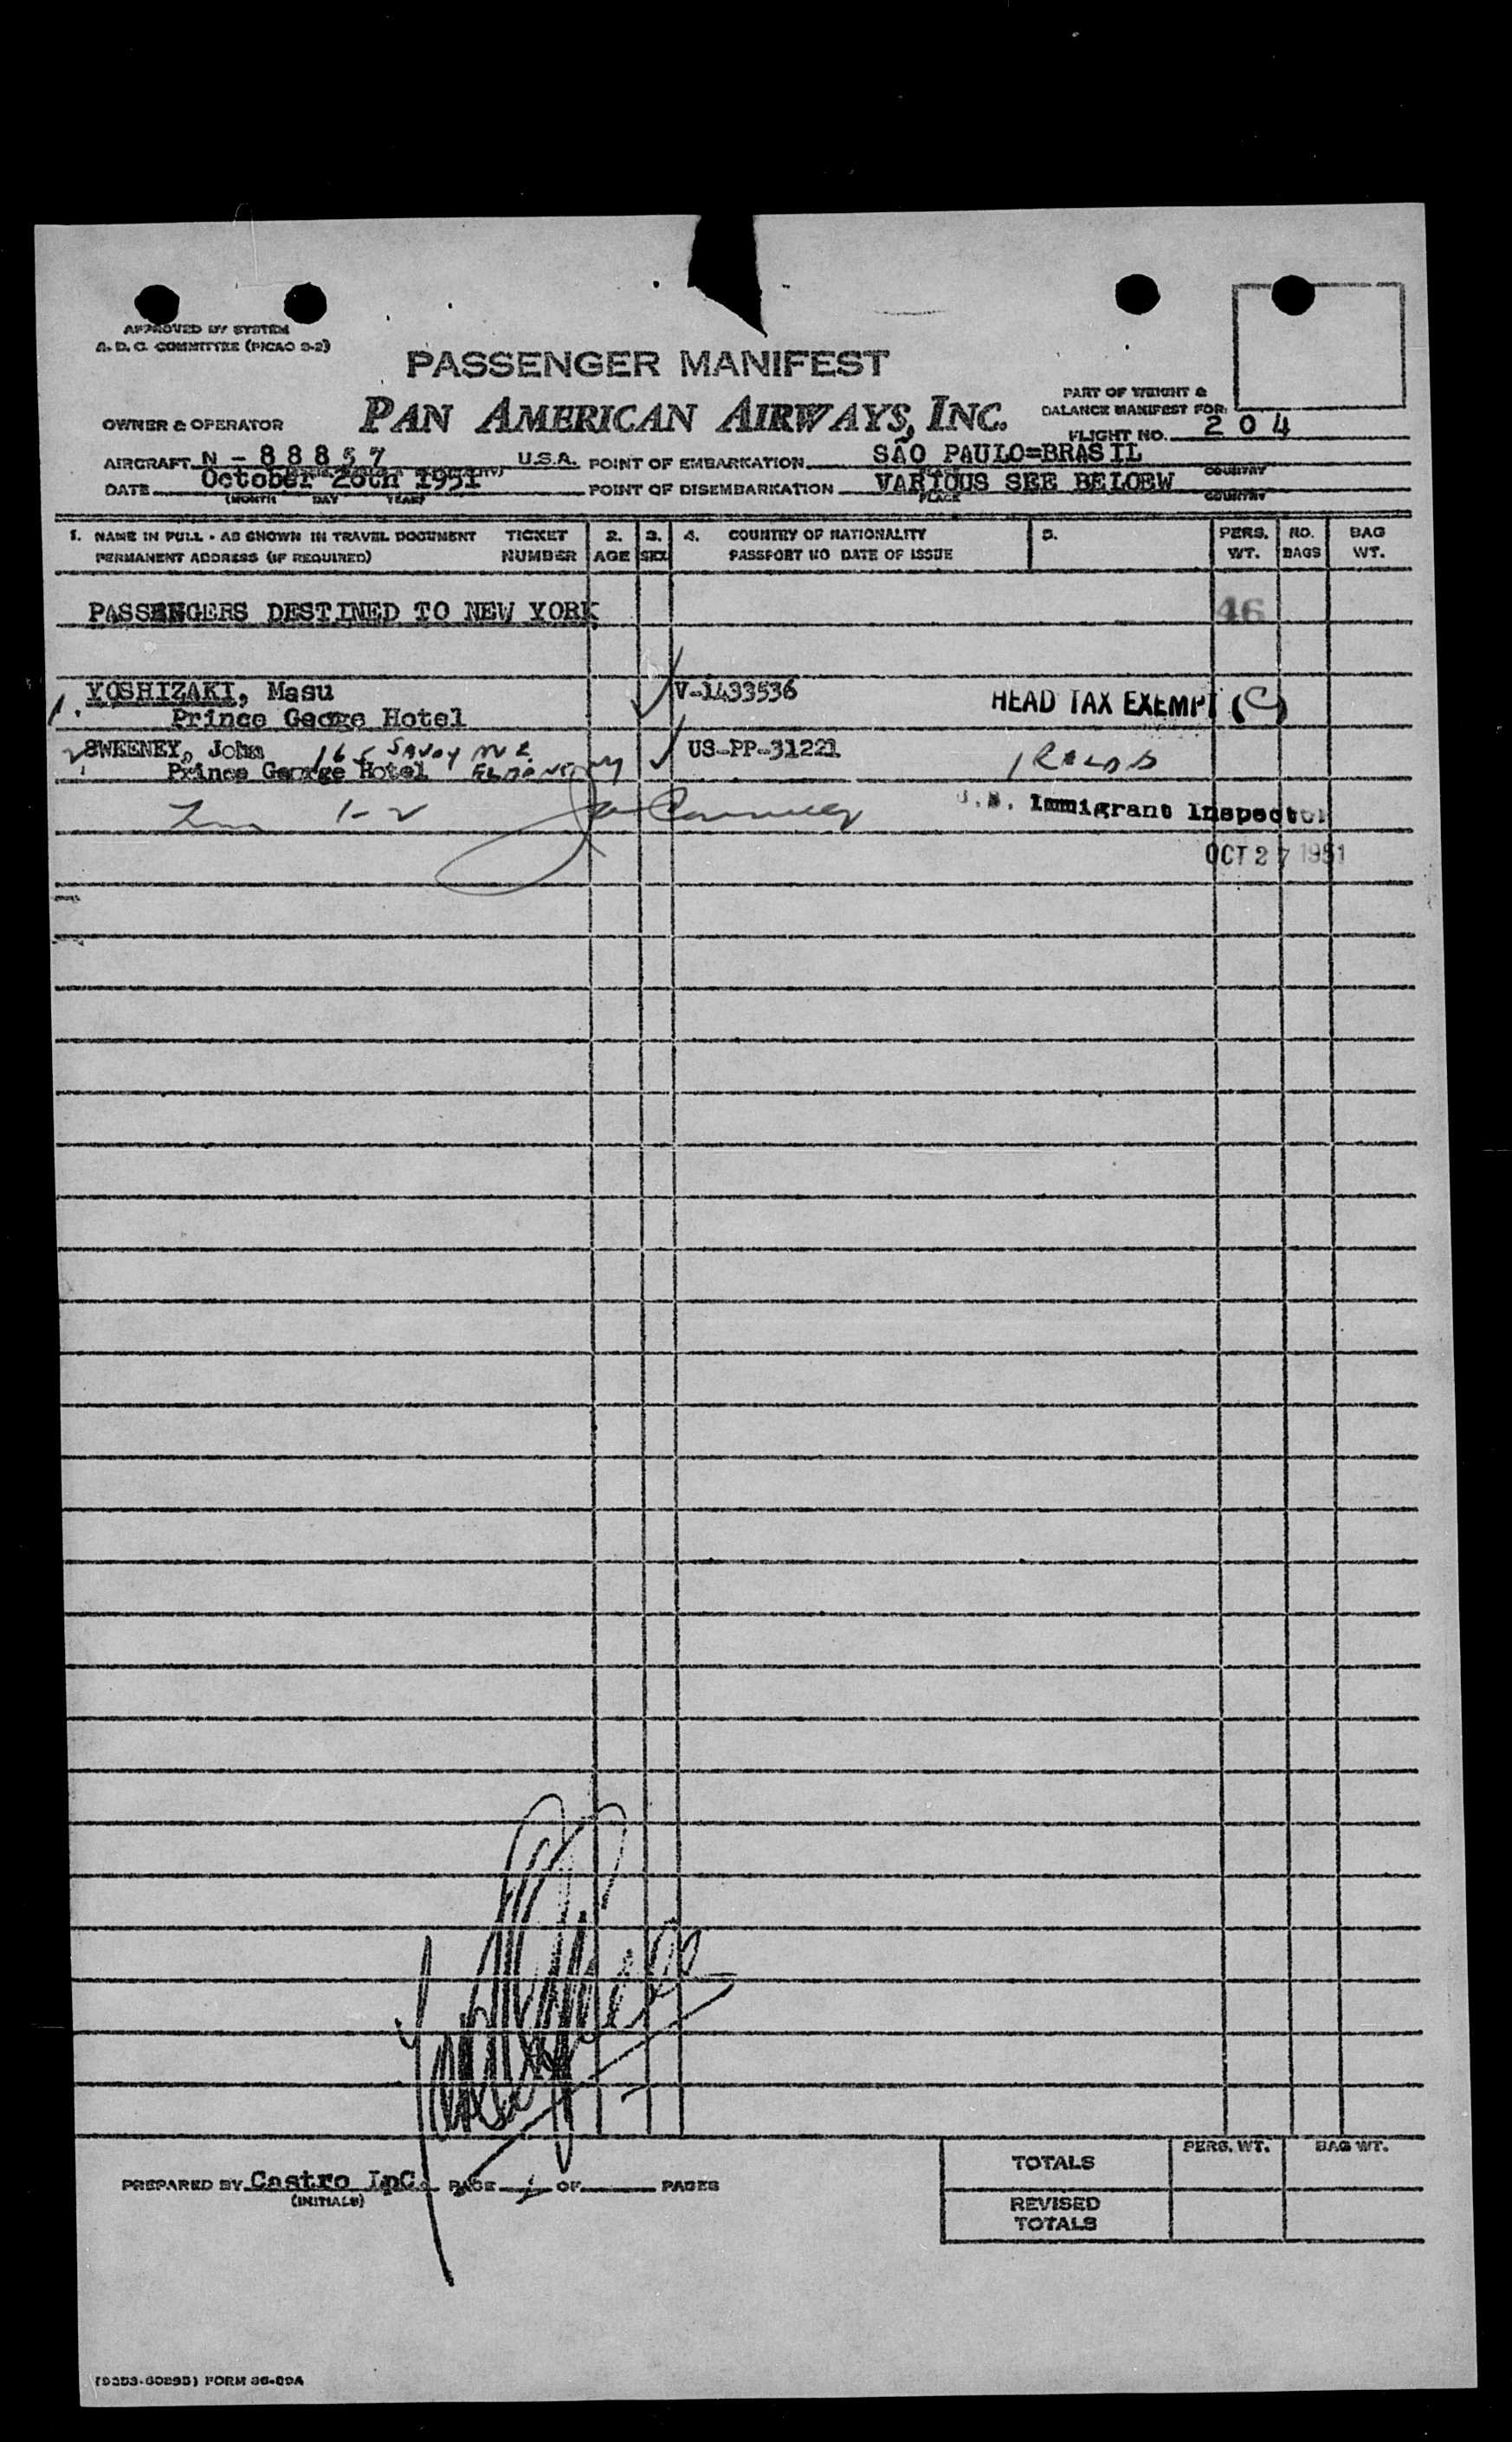 APPROVED BY SYSTEM
A. D. C. COMMITTEE (PICAO 3-2)
PASSENGER MANIFEST
PART OF WEIGHT &
BALANCE MANIFEST FOR:
OWNER & OPERATOR PAN AMERICAN AIRWAYS, INC.
FLIGHT NO. 204
AIRCRAFT N - 88857 U.S.A. POINT OF EMBARKATION SÃO PAULO=BRASIL
COUNTRY
DATE October 26th 1951 POINT OF DISEMBARKATION VARIOUS SEE BELOEW
(MONTH DAY YEAR) PLACE COUNTRY
1. NAME IN FULL - AS SHOWN IN TRAVEL DOCUMENT TICKET 2. 3. 4. COUNTRY OF NATIONALITY 5. PERS. NO. BAG
PERMANENT ADDRESS (IF REQUIRED) NUMBER AGE SEX PASSPORT NO DATE OF ISSUE WT. BAGS WT.
PASSENGERS DESTINED TO NEW YORK 46
1. YOSHIZAKI, Masu V-1433536 HEAD TAX EXEMPT (C)
Prince George Hotel
2 SWEENEY, John 165 SAVOY AVE. US-PP-31221
Prince George Hotel ELMONT NY
1-2 U.S. Immigrant Inspector
OCT 27 1951
PREPARED BY Castro InC. PAGE 1 OF PAGES
(INITIALS)
TOTALS PERS. WT. BAG WT.
REVISED
TOTALS
FORM 36-09A